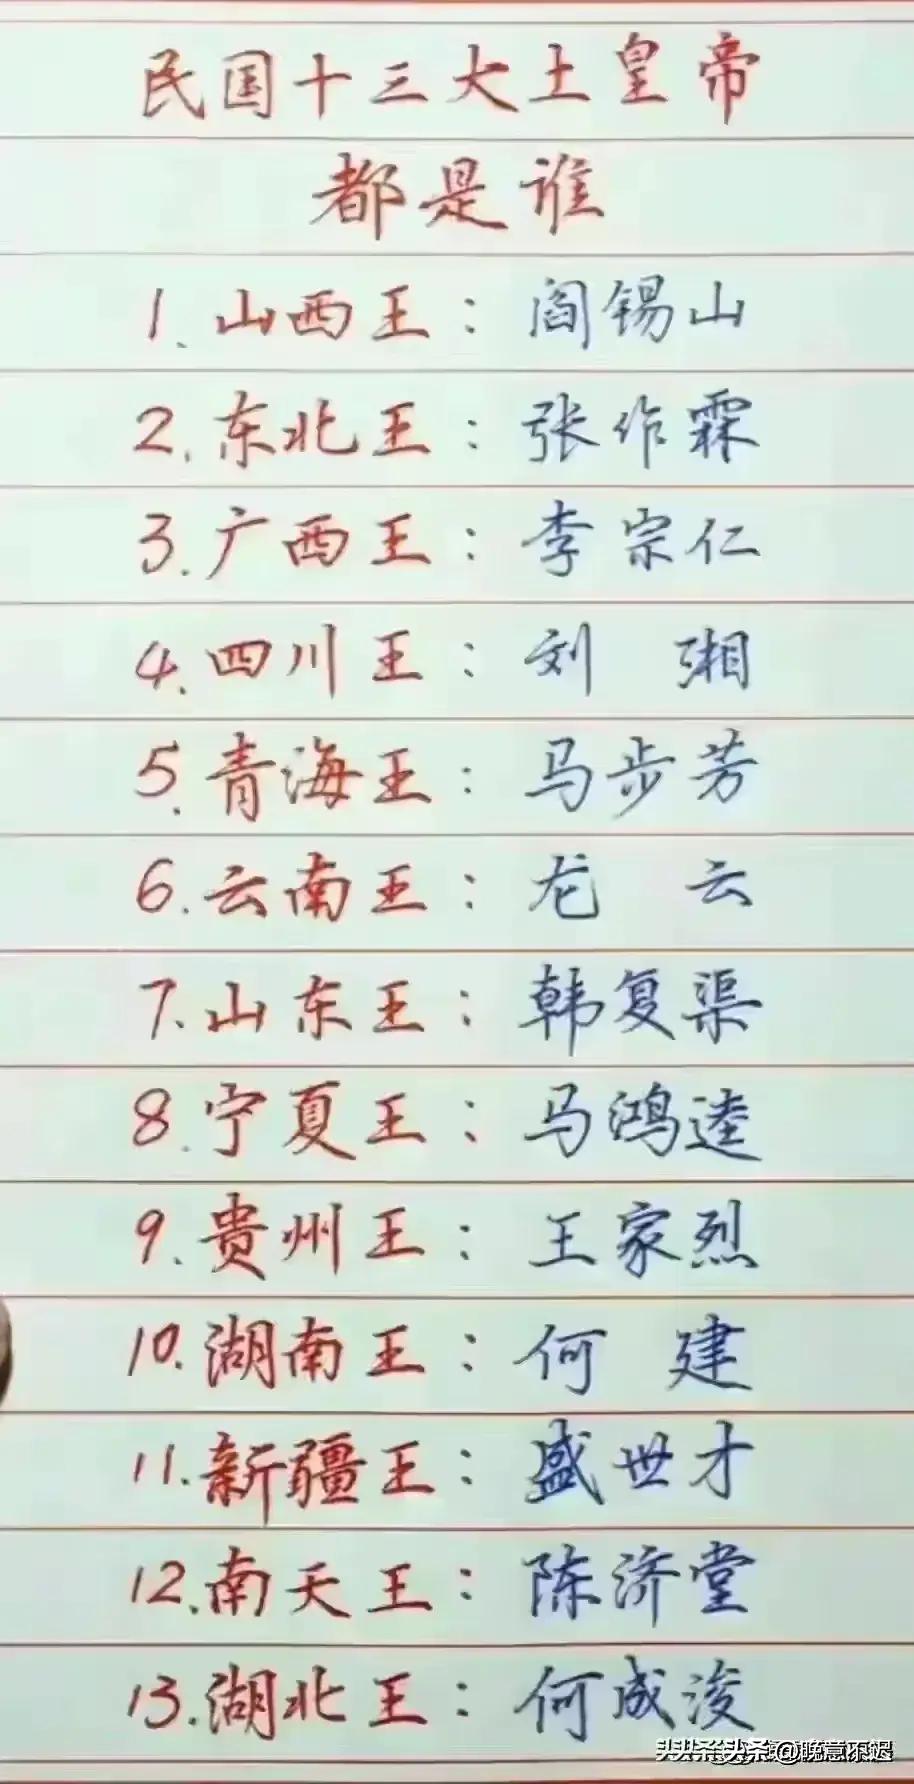 民国十三大土皇帝
都是谁
1.山西王：阎锡山
2.东北王：张作霖
3.广西王：李宗仁
4.四川王：刘 湘
5.青海王：马步芳
6.云南王：龙 云
7.山东王：韩复渠
8.宁夏王：马鸿逵
9.贵州王：王家烈
10.湖南王：何 建
11.新疆王：盛世才
12.南天王：陈济堂
13.湖北王：何成浚
@晚意不迟